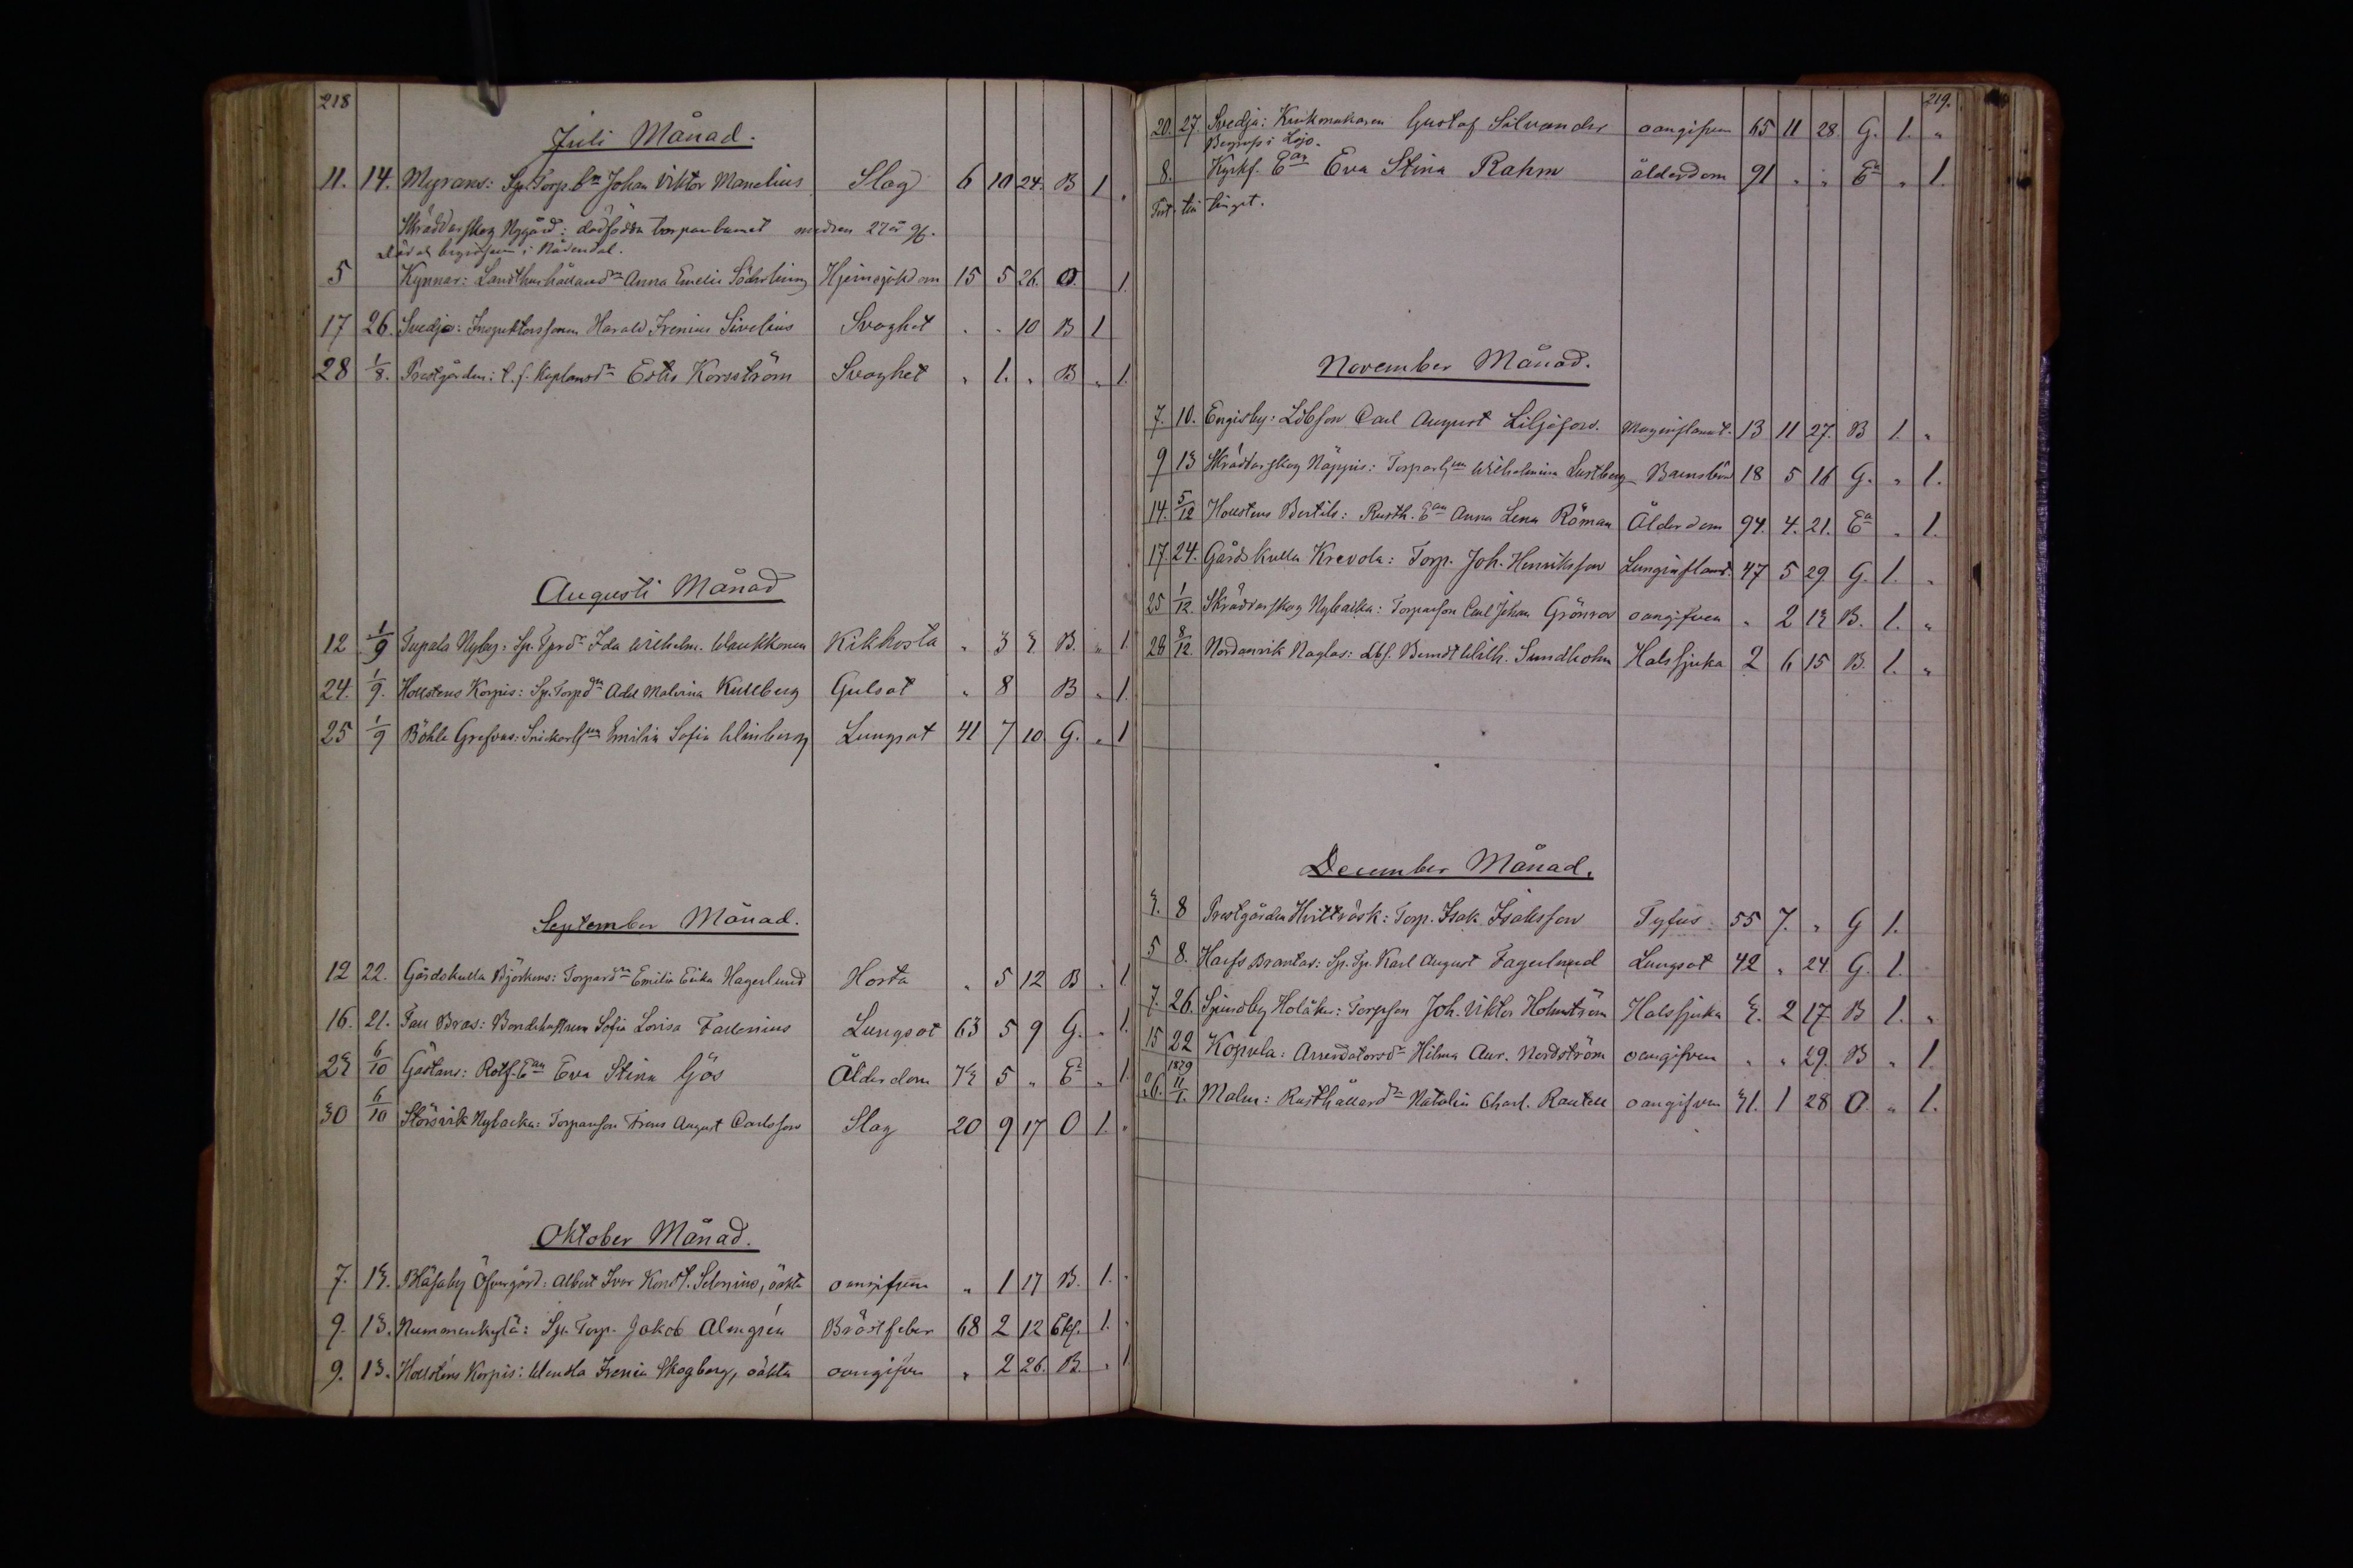 218
Juli Månad.
11. 14. Myrans: Sp. Torp. bn Johan Viktor Manelius Slag 6 10 24. B 1 "
Skräddarskog Nygård: dödfödda torparbarnet modren 27 år gf.
Död och begrafven i Nådendal.
5 Kynnar: Landthushålland Anna Emelie Söderling Hjernsjukdom 15 5 26. O. 1.
17 26. Svedja: Inspektorssonen Harald Irenius Sivelius Svaghet " " 10 B 1
28 1/8. Prestgården: t. f. Kaplansdr Ester Korsström Svaghet " 1. " B " 1.
Augusti Månad
12 1/9 Tupala Nyby: Sp. Tprdr Ida Wilhelm. Kikhosta " 3 3 B. " 1
24. 1/9. Hollstens Korpis: Sp. Torpdr Adel Malvina Kullberg Gulsot " 8 B " 1.
25 1/9 Böhle Grefvas: Emilia Sofia Lungsot 41 7 10 G. " 1
September Månad.
12 22. Gårdskulla Björkens: Torpardr Emilia Erika Hagerlund Hosta " 5 12 B " 1
16. 21. Fall Bras: Bondehustrun Sofia Lovisa Fallenius Lungsot 63 5 9 G. " 1.
23 6/10 Gästans: Rotf. Ean Eva Stina Gös Ålderdom 73 5 " Ea " 1.
30 6/10 Störsvik Nybacka: Torparson Frans August Carlsson Slag 20 9 17 O 1. "
Oktober Månad.
7. 13. Blåsaby Öfvergård: Albert Ivar Konst. Selenius, oäkta oangifven " 1 17 B. 1. "
9. 13. Nummenkylä: Sp. Torp. Jakob Almgrén Bröstfeber 68 2 12 Ekl. 1. "
9. 13. Hollstens Korpis: Wendla Irenia Skogberg, oäkta oangifven " 2 26. B. " 1
219.
20. 27. Svedja: Krukmakaren Gustaf Silvander oangifven 65 11 28. G. 1. "
Begrafs i Lojo.
8. Kyrkf. Ean Eva Stina Rahm ålderdom 91 " " Ea " 1.
Fört till tinget.
November Månad.
7. 10. Engisby: Lösson Carl August Liljefors. Maginflamat. 13 11 27. B 1. "
9 13 Skräddarskog Näppis: Wilhelmina Lustberg Barnsbörd 18 5 16 G. " 1.
14. 5/12 Hollstens Bertils: Rusth. Ean Anna Lena Röman Ålderdom 94. 4. 21. Ea " 1.
17. 24. Gårdskulla Krevola: Torp. Joh. Henriksson Lunginflam. 47 5 29. G. 1. "
25 1/12. Skräddarskog Nybacka: Torparson Carl Johan Grönroos oangifven " 2 13 B. 1. "
28 8/12. Nordanvik Naglas: Bernndt Wilh. Sundholm Halssjuka 2 6 15 B. 1. "
December Månad.
3. 8 Prestgården Hvitträsk: Torp. Isak Isaksson Tyfus 55 7. " G 1.
5 8. Brantas: Sp. Tp. Karl August Fagerlund Lungsot 42 " 24. G. 1.
7. 26. Sjundby Holåker: Torpson Joh. Viktor Holmström Halssjuka 3. 2 17. B 1. "
15 22 Kopula: Arrendatorsdr Hilma Aur. Nordström oangifven " " 29. B " 1.
1879
26. 11/1. Malm: Rusthållardr Natalia Charl. Rautell oangifven 31. 1 28 O. " 1.